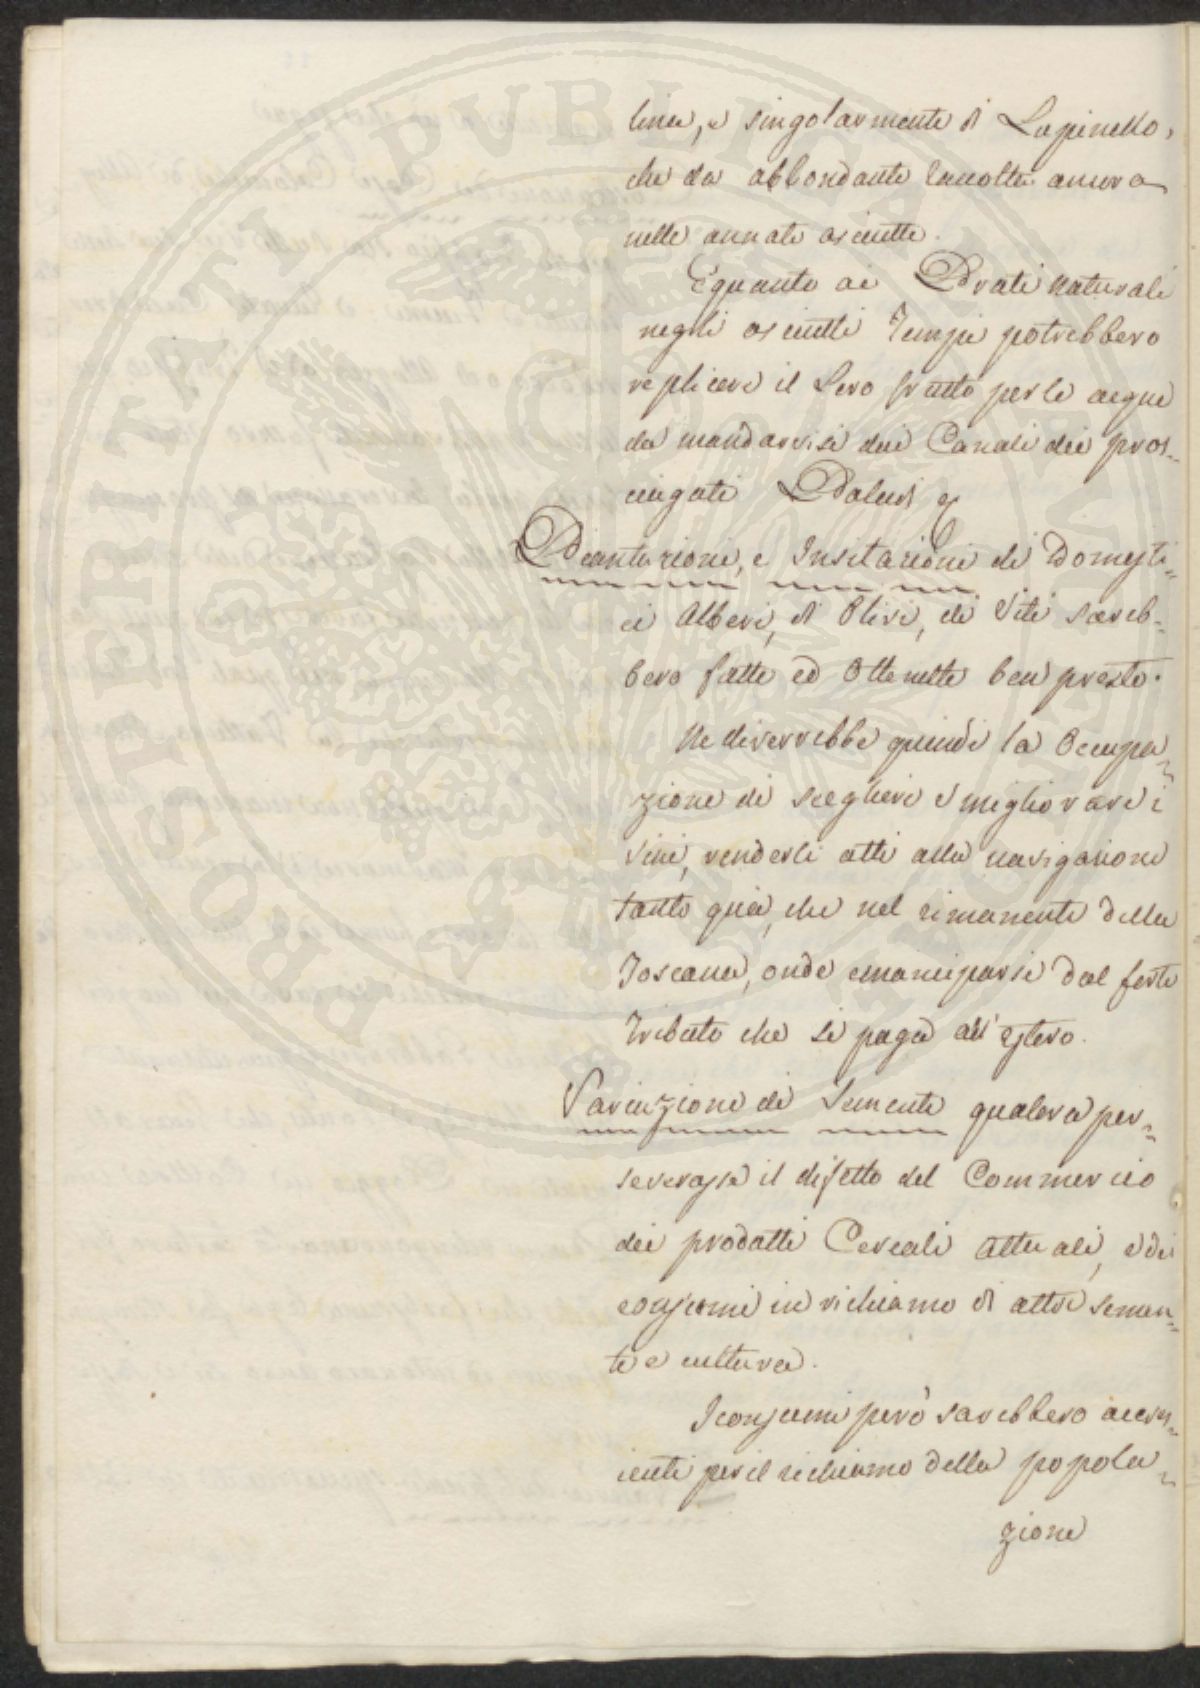 lina, e singolarmente di Lupinello,
che da abbondante raccolta ancora
nelle annate asciutte.
E quanto ai Prati naturali
negli asciutti Tempi potrebbero
replicare il Loro frutto per le acque
da mandarvisi dai Canali dei pros=
ciugati Paludi &
Piantazione, e Insitazione di Domesti=
ci Alberi, di Olivi, di Viti sareb=
bero fatte ed Ottenute ben presto.
Ne diverrebbe quindi la Occupa=
zione di scegliere e migliorare i
Vini, renderli atti alla navigazione
tanto quà, che nel rimanente della
Toscana, onde emanciparsi dal forte
Tributo che si paga all'Estero.
Variazione di Sementi qualora per=
severasse il difetto del Commercio
dei prodotti Cereali attuali, e dei
consumi in richiamo di altre semen=
te e cultura.
I consumi però sarebbero accres=
ciuti per il richiamo della popola=
zione
PROSPERITATI PUBLICAE